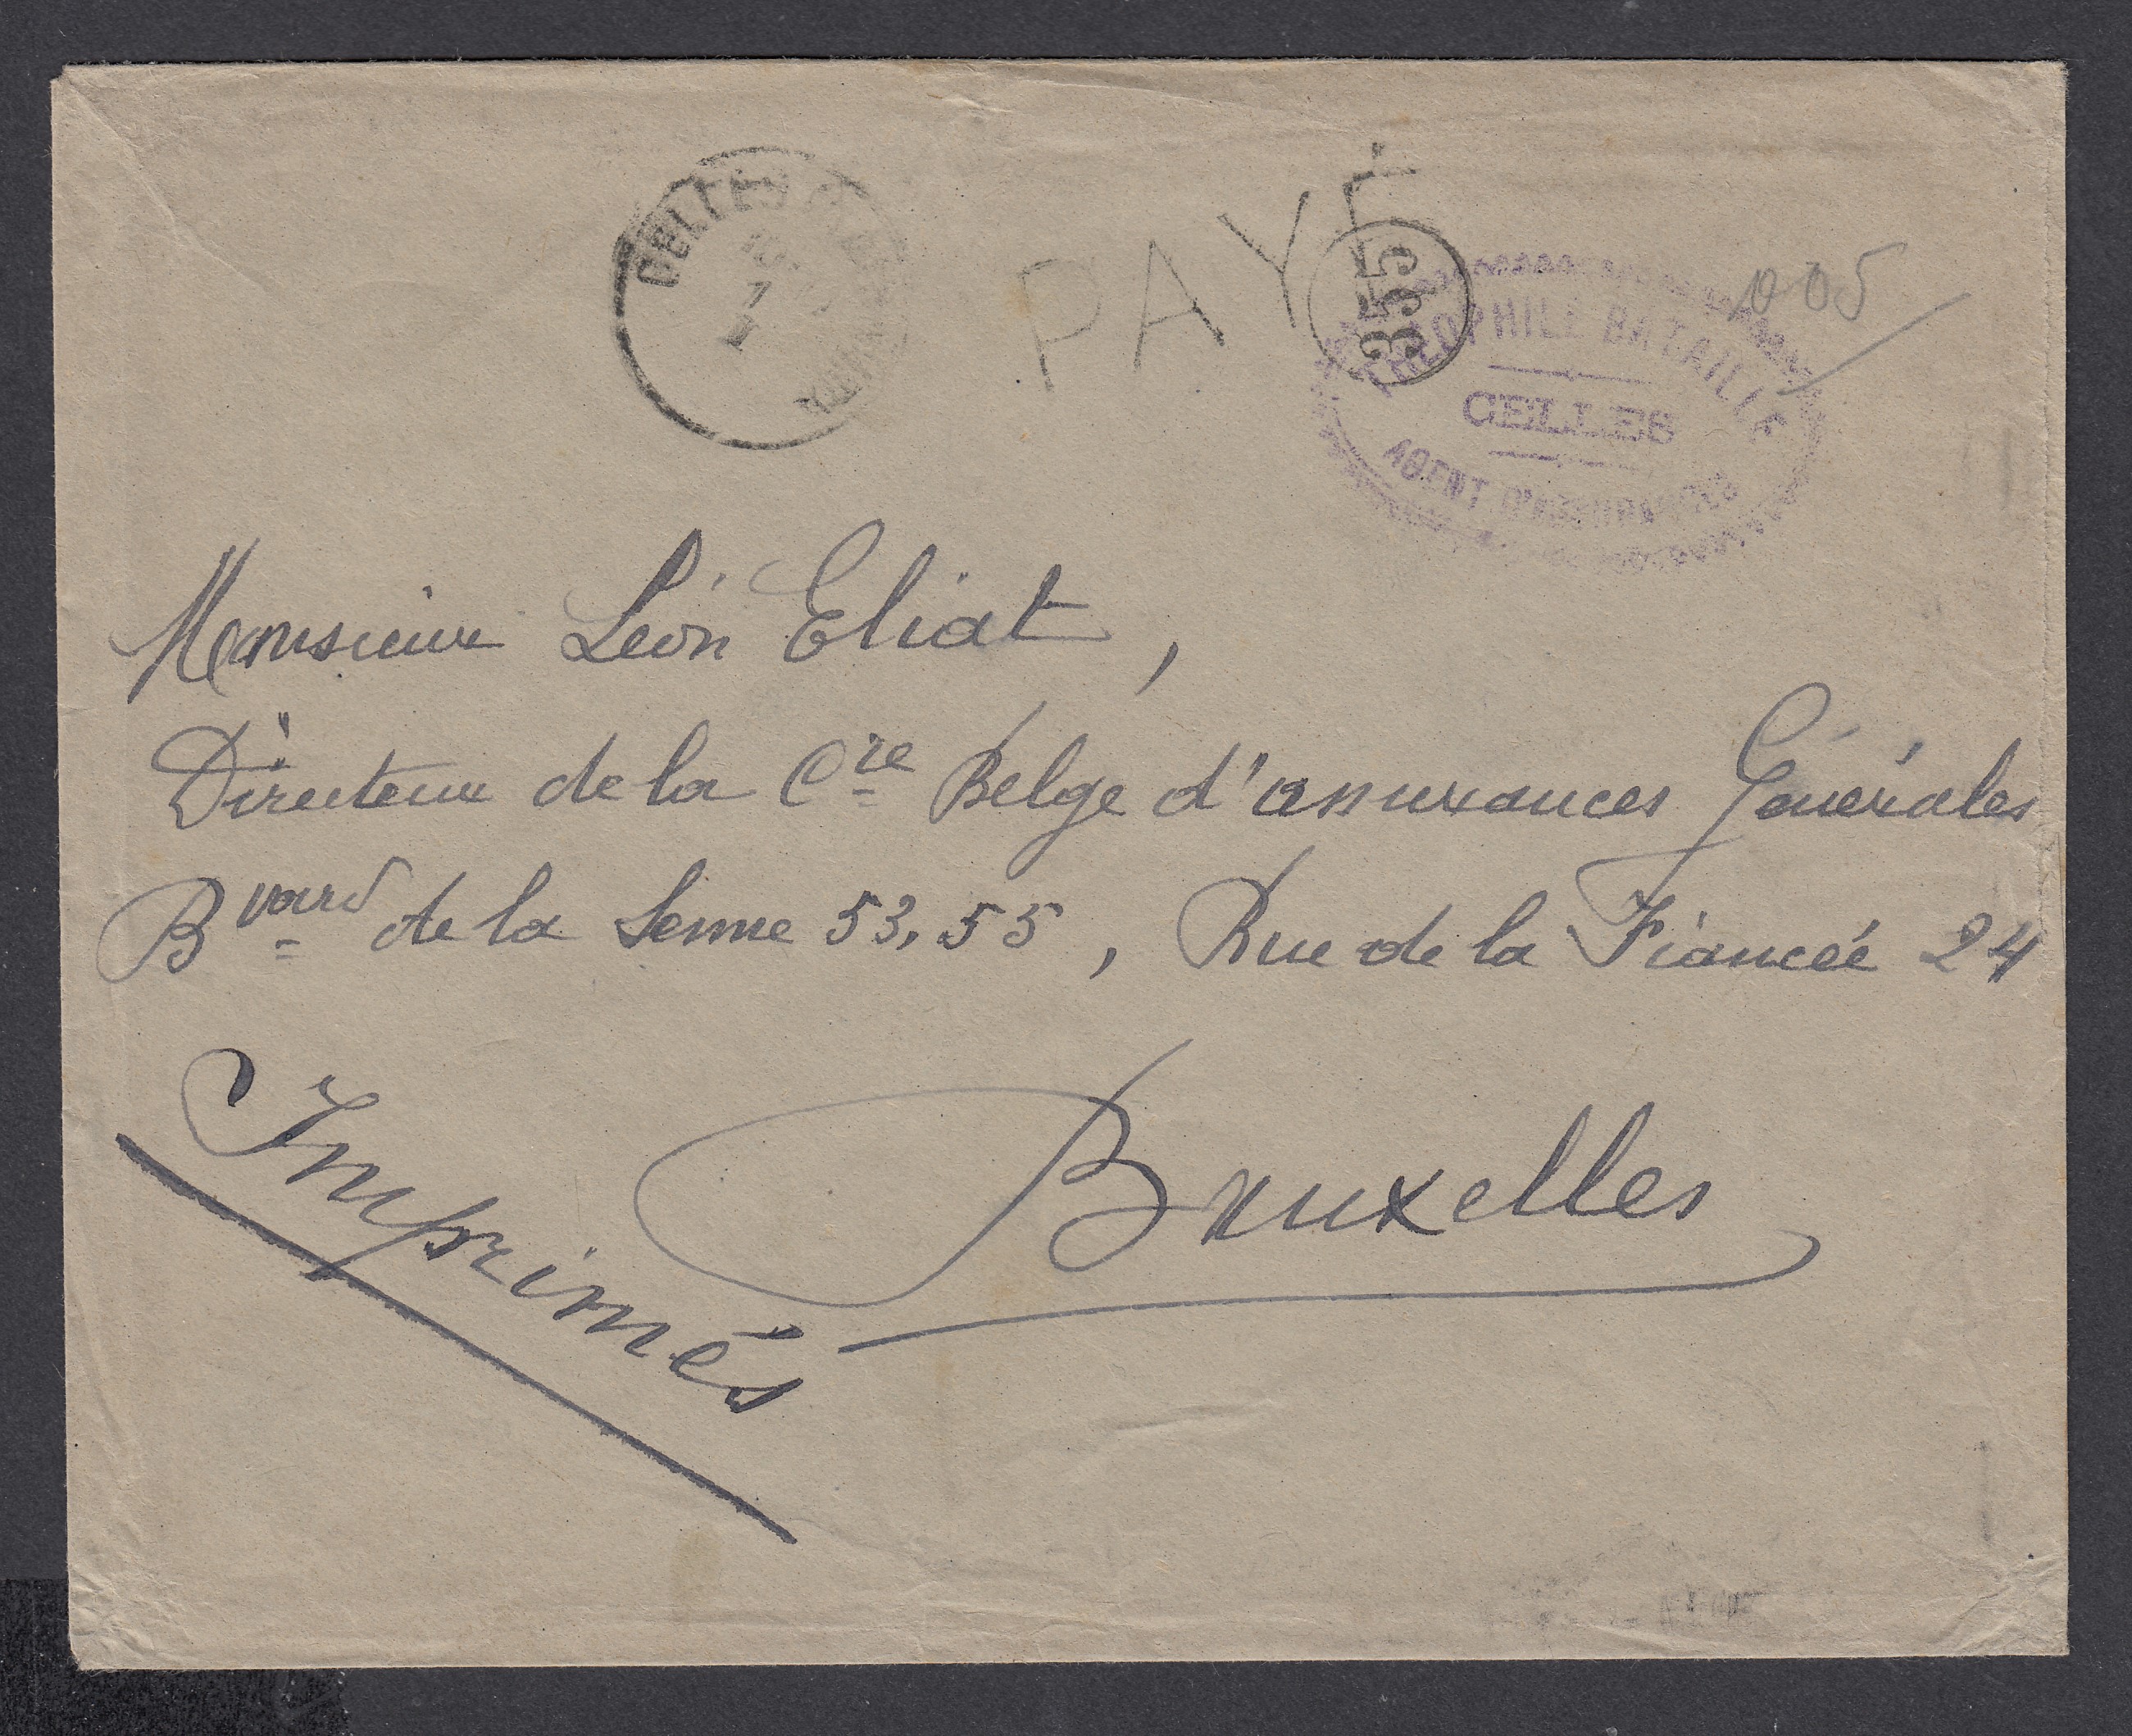 CELLES
PAYÉ
355
005
THEOPHILE BATAILLE
CELLES
AGENT D'ASSURANCES
Monsieur Léon Eliat,
Directeur de la Cie Belge d'assurances Générales
Bvard de la Senne 53, 55, Rue de la Fiancée 24
Bruxelles
Imprimés